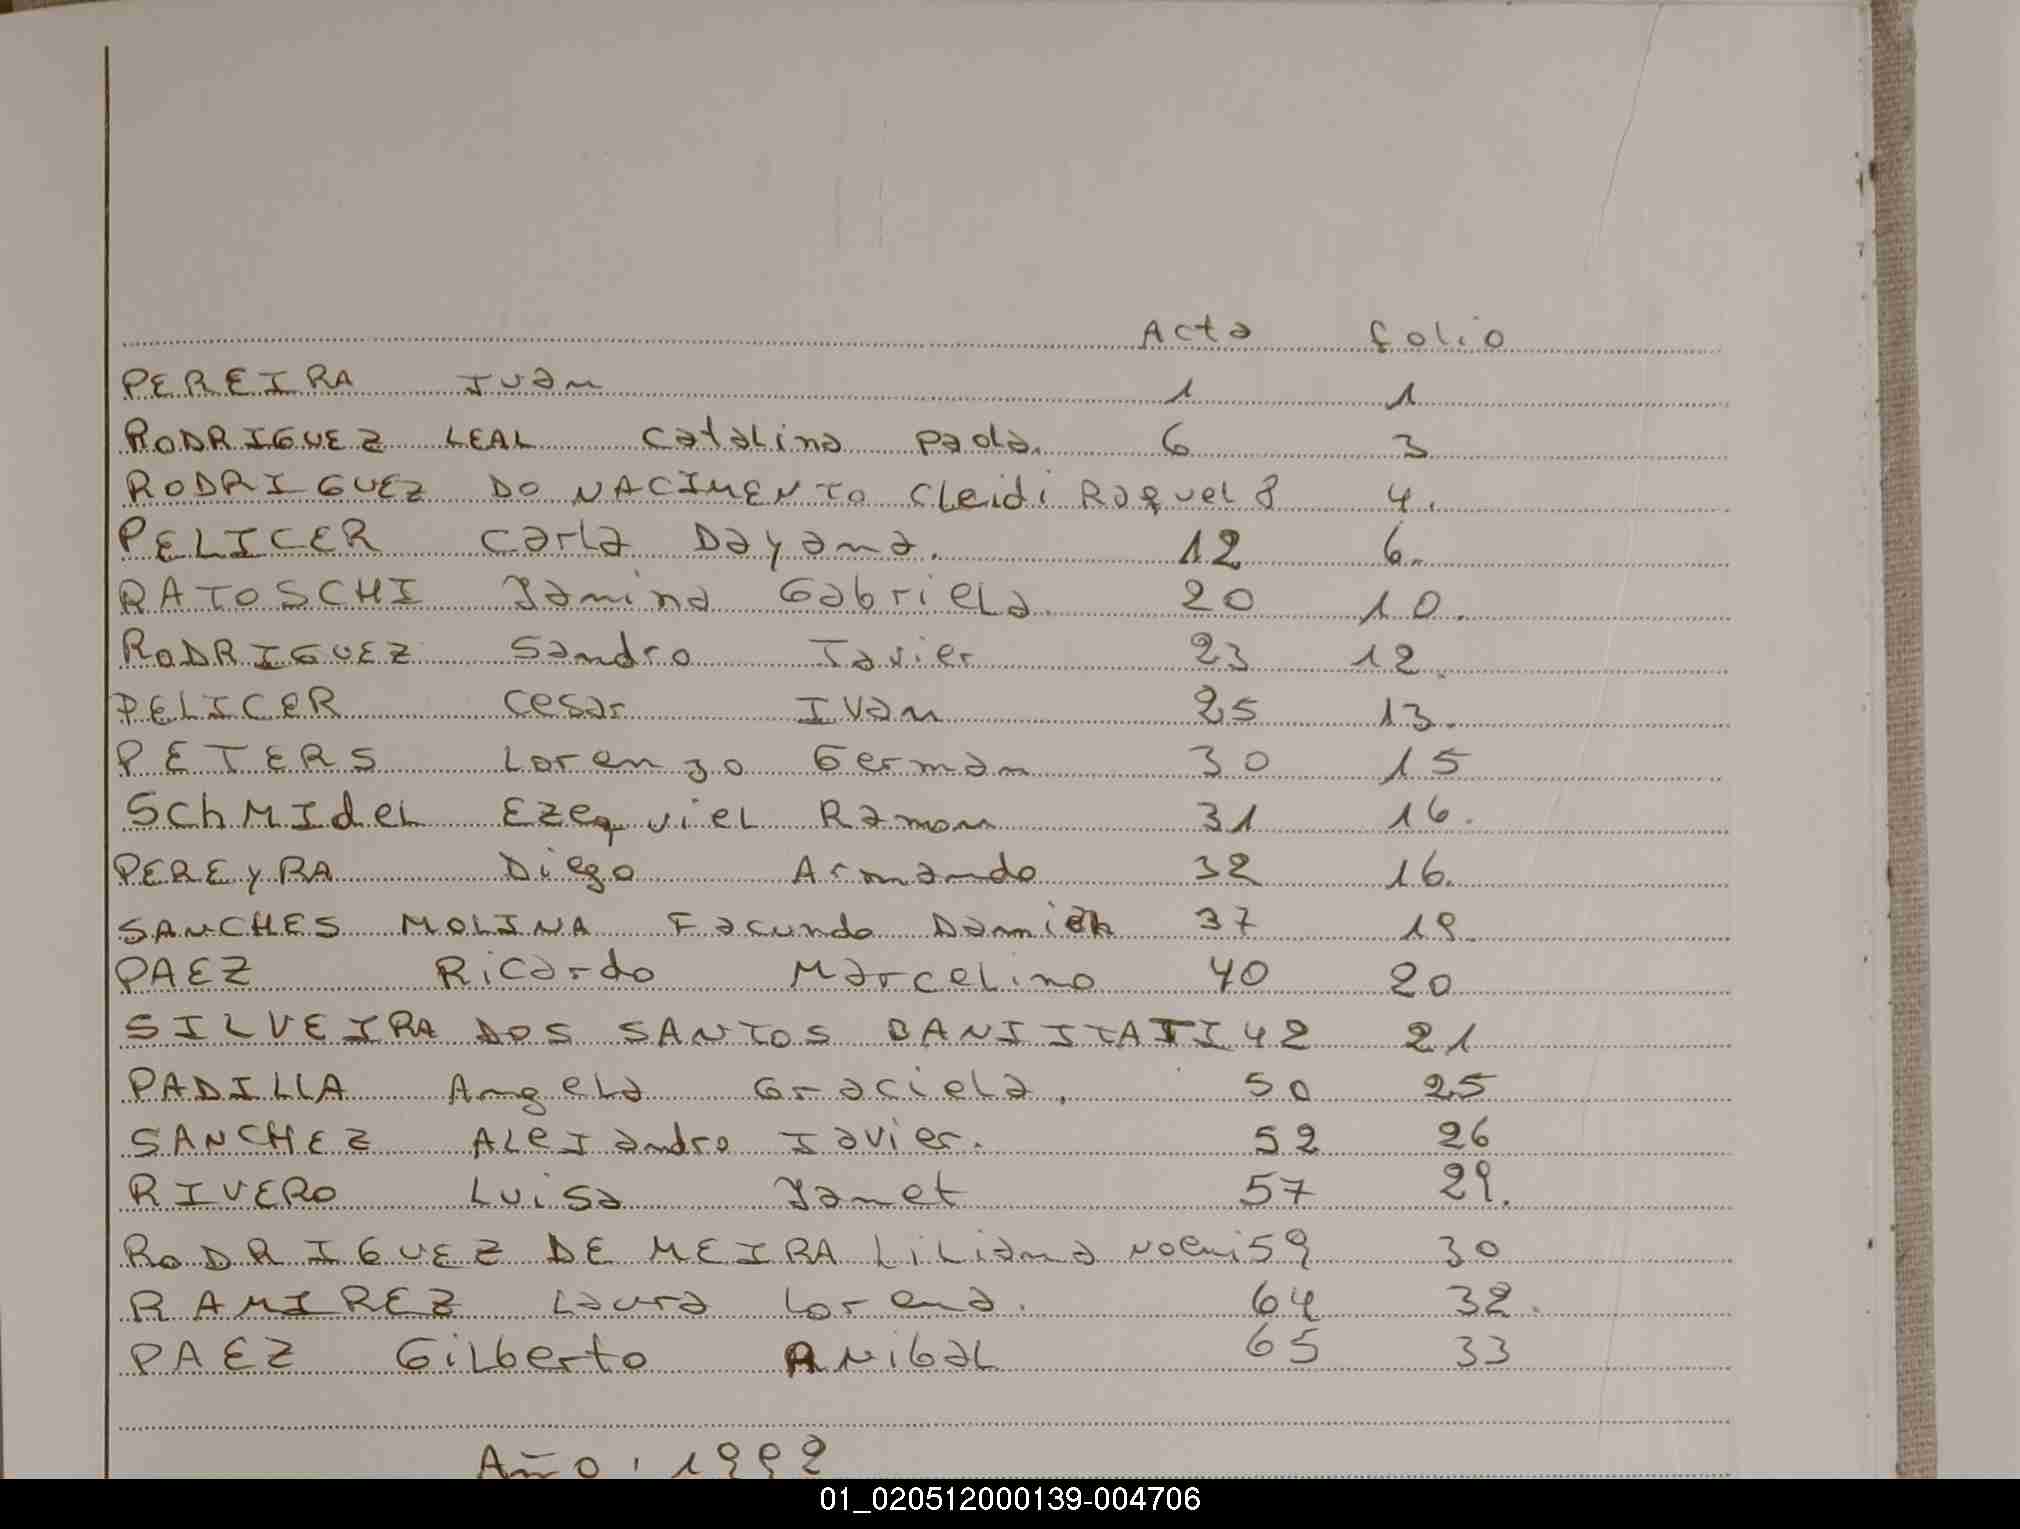 Acta folio
PEREIRA Ivan 1 1
RODRIGUEZ LEAL Catalina Paola. 6 3
RODRIGUEZ DO NACIMENTO Cleidi Raquel 8 4.
PELICER Carla Dayana. 12 6.
RATOSCHI Yanina Gabriela. 20 10.
RODRIGUEZ Sandro Javier 23 12.
PELICER Cesar IVan 25 13.
PETERS Lorenzo German 30 15
SChMIdeL Ezequiel Ramon 31 16.
PEREyRA Diego Armando 32 16.
SANCHES MOLINA Facundo Damian 37 19.
PAEZ Ricardo Marcelino 40 20
SILVEIRA DOS SANTOS 42 21
PADILLA Angela Graciela. 50 25
SANCHEZ Alejandro Javier. 52 26
RIVERO Luisa Yanet 57 29.
RODRIGUEZ DE MEIRA Liliana Noemi 59 30
RAMIREZ Laura Lorena. 64 32.
PAEZ Gilberto Anibal 65 33
Año: 1992
01_020512000139-004706